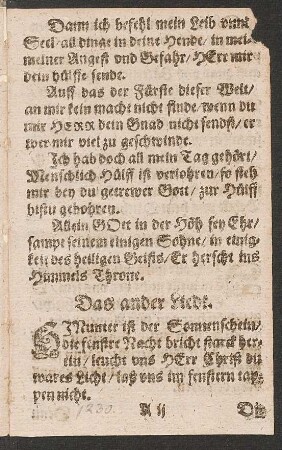 Dann ich befehl mein Leib vnnd
Seel/ all dinge in deine Hende/ in mei-
meiner Angest vnd Gefahr/ HErr mir
dein hülffe sende.
Auff das der Fürste dieser Welt/
an mir kein macht nicht finde/ wenn du
mir HERR dein Gnad nicht sendst/ er
wer mir viel zu geschwinde.
Ich hab doch all mein Tag gehört/
Menschlich Hülff ist verlohren/ so steh
mir bey du getrewer Gott/ zur Hülff
bistu gebohren.
Allein GOtt in der Höh sey Ehr/
sampt seinem einigen Sohne/ in einig-
keit des heiligen Geists/ Er herscht ins
Himmels Throne.
Das ander Liedt.
Munter ist der Sonnenschein/
die finstre Nacht bricht starck her-
ein/ leucht vns HErr Christ du
wares Licht/ laß vns im fenstern tap-
pen nicht.
A ij
Die
1230.